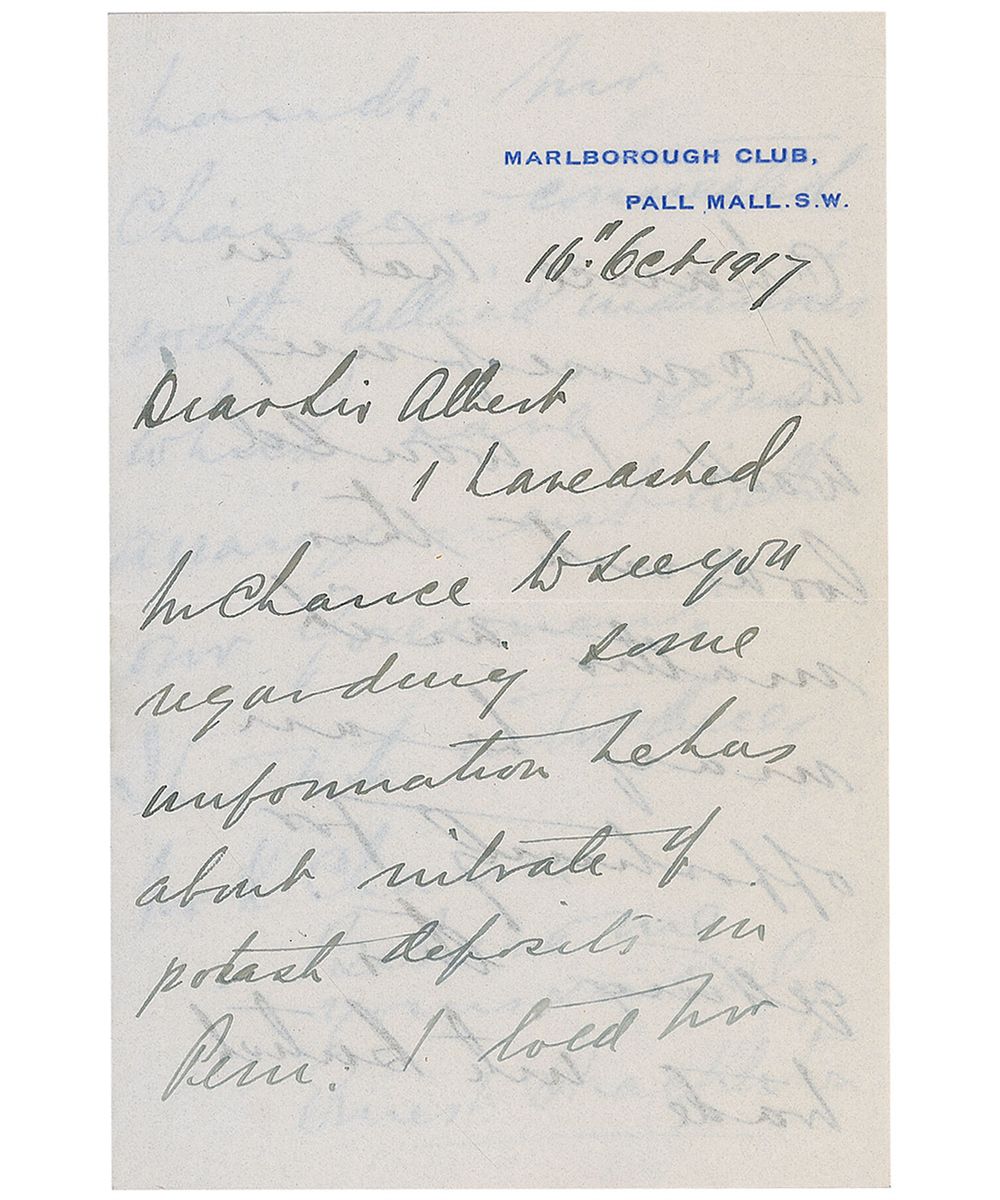 MARLBOROUGH CLUB,
PALL MALL.S.W.
16th Oct 1917
Dear Sir Albert
I have asked
Mr Chance to see you
regarding some
information he has
about nitrate of
potash deposits in
Peru. I told Mr